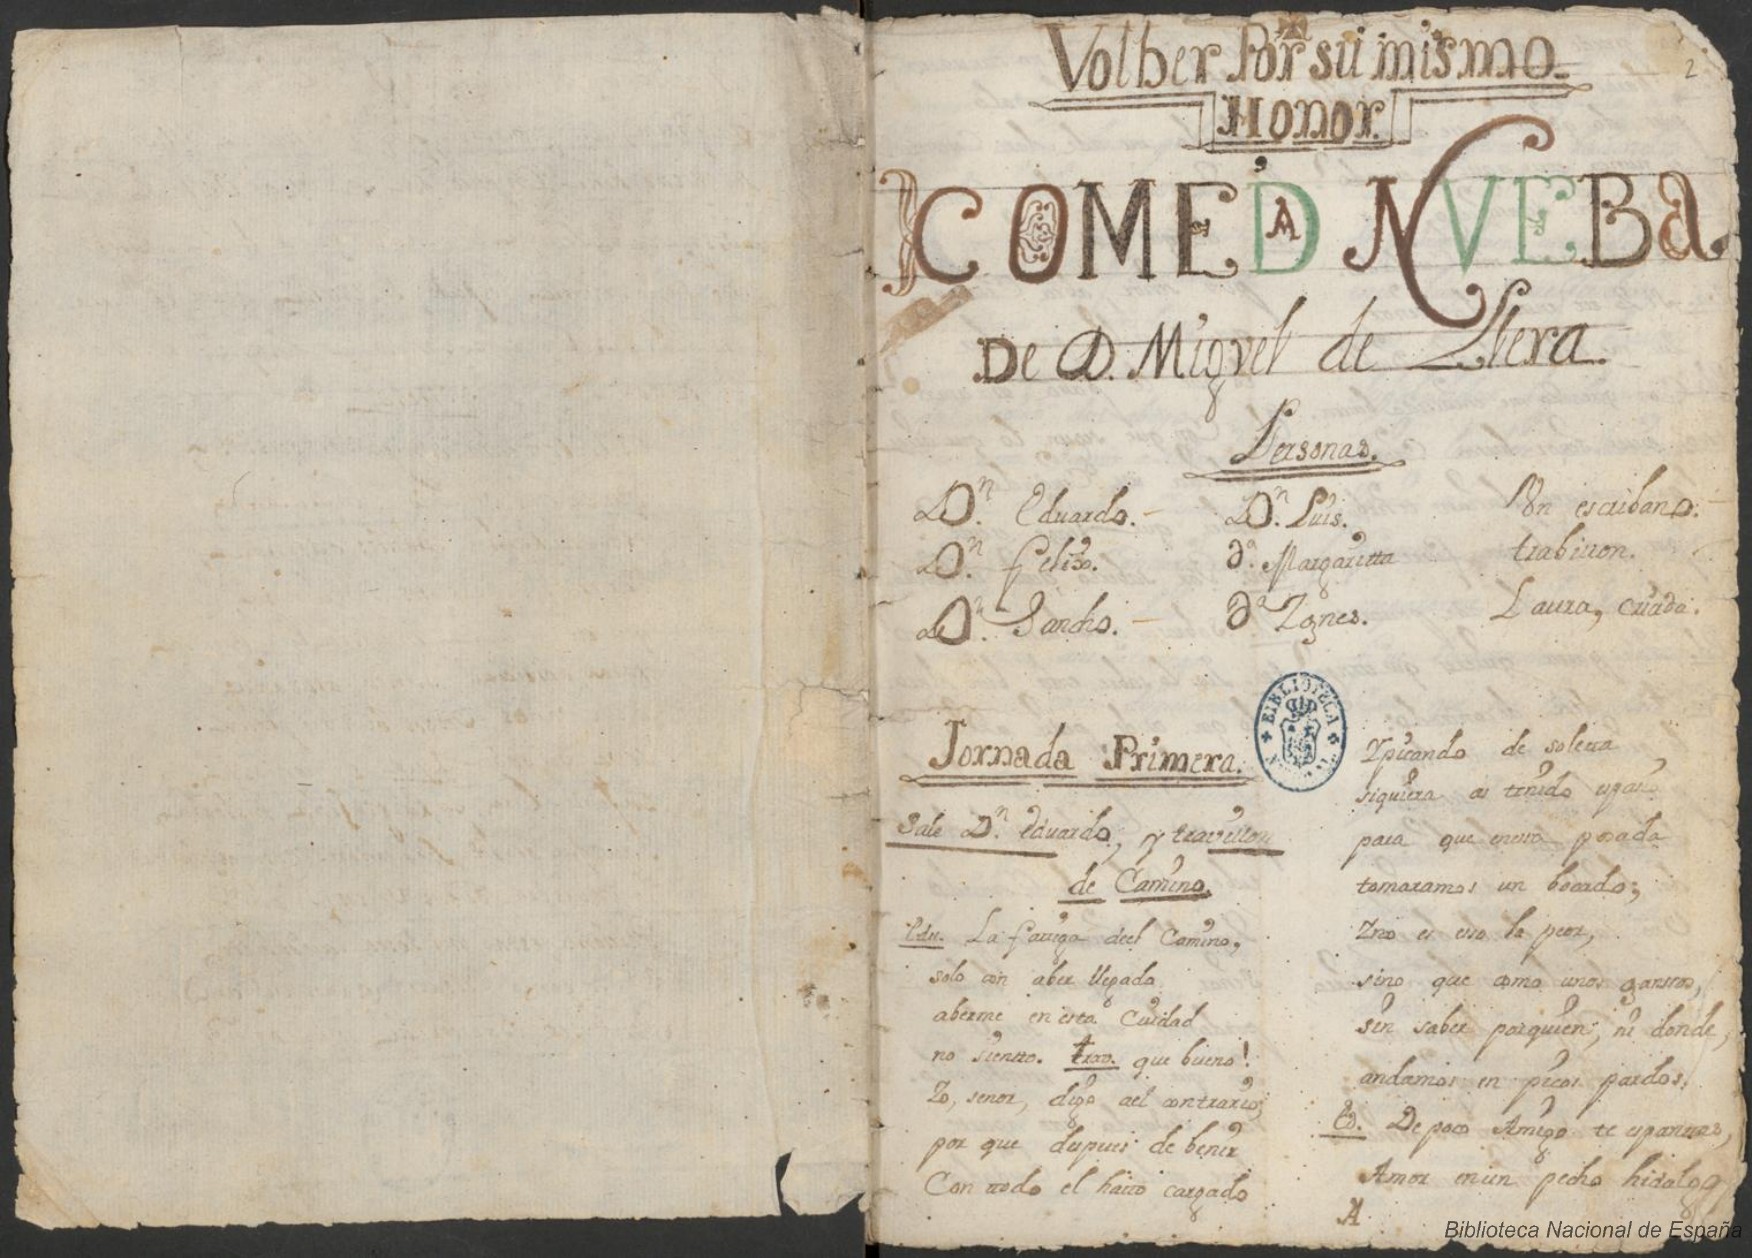 Volber Por su mismo
Honor.
COMEDA NVEBA.
De D. Miguel de Llera.
2
Personas.
Dn. Eduardo.
Dn. Felix.
Dn. Sancho.
Dn. Luis.
Da. Margaritta
Da. Ygnes.
Vn escribano.
trabiton.
Laura, criada.
Jornada Primera.
Sale Dn. Eduardo, y traviton
de Camino.
Edu. La fatiga deel Camino,
solo con aber llegado
aberme en esta Ciudad
no sientto. trav. que bueno!
Yo, señor, digo ael contrario;
por que depues de benir
Con ttodo el hatto cargado
Ypicando de soletta
siquiera as tenido espazio
para que en una posada
tomaramos un bocado;
Yno es eso lo peor,
sino que como unos gansos,
sin saber porquien, ni donde,
andamos en picos pardos.
Ed. De poco Amigo te espantas,
Amor en un pecho hidalgo,
A
BIBLIOTECA
Biblioteca Nacional de España